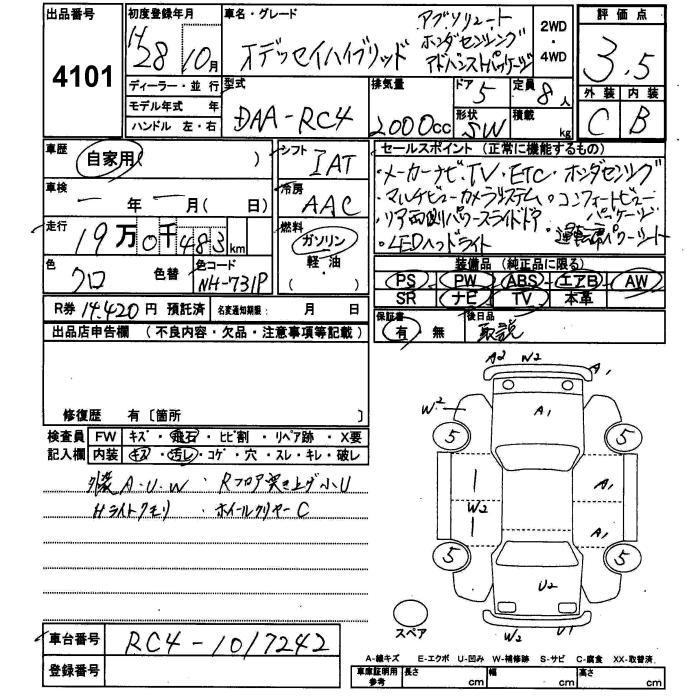 出品番号
4101
初度登録年月
H 28 10月
ディーラー・並行
モデル年式 年
ハンドル 左・右
車名・グレード
オデッセイハイブリッド
アブソリュート
ホンダセンシング
アドバンストパッケージ
2WD
・
4WD
評価点
3.5
外装 内装
C B
型式
DAA-RC4
排気量
2000cc
ドア
5
定員
8人
形状
SW
積載
kg
車歴
自家用( )
車検
一 年 一 月( 日)
走行
19万0千483km
色
クロ 色替
色コード
NH-731P
シフト
IAT
冷房
AAC
燃料
ガソリン
軽・油
( )
セールスポイント (正常に機能するもの)
・メーカーナビ・TV・ETC・ホンダセンシング
・マルチビューカメラシステム・コンフォートビュー
パッケージ
・リア両側パワースライドドア
・LEDヘッドライト ・運転席パワーシート
装備品 (純正品に限る)
PS PW ABS エアB AW
SR ナビ TV 本革
R券 14,420円 預託済 名変通知期限: 月 日
保証書
有・無
後日品
取説
出品店申告欄 (不良内容・欠品・注意事項等記載)
修復歴 有〔箇所 〕
検査員
記入欄
FW キズ・飛石・ヒビ割・リペア跡・X要
内装 キズ・汚レ・コゲ・穴・スレ・キレ・破レ
外装A・U・W ・Rフロア突き上げ小U
Hライトクモリ ・ホイールクリヤーC
車台番号 RC4-1017242
登録番号
A2 W2 A1
W2 A1
5 5
A1
W2
A1
5 5
U2
W2 U1
スペア
A-線キズ E-エクボ U-凹み W-補修跡 S-サビ C-腐食 XX-取替済
車庫証明用
参考
長さ cm 幅 cm 高さ cm